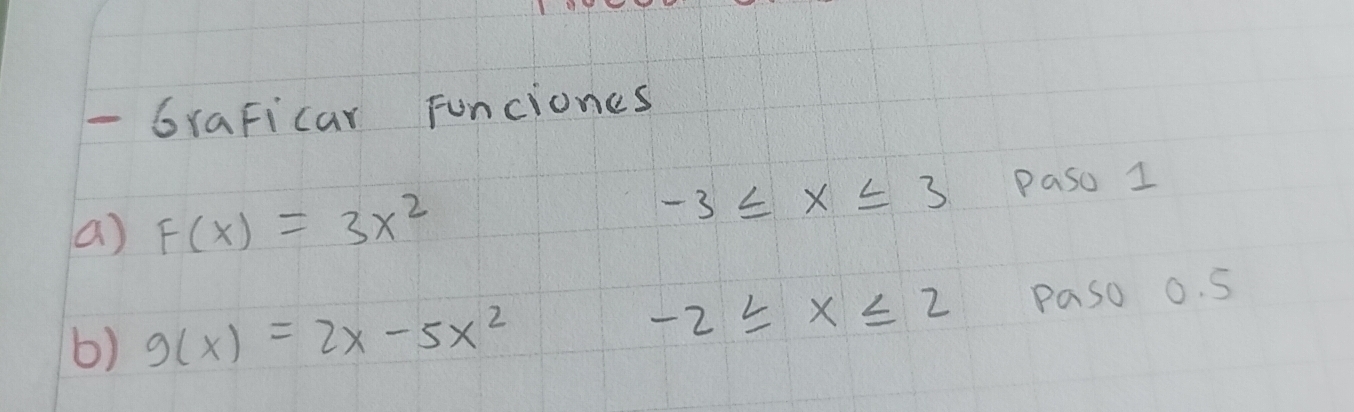 - Graficar Funciones
a) F(x) = 3x² -3 ≤ x ≤ 3 Paso 1
b) g(x) = 2x - 5x² -2 ≤ x ≤ 2 Paso 0.5